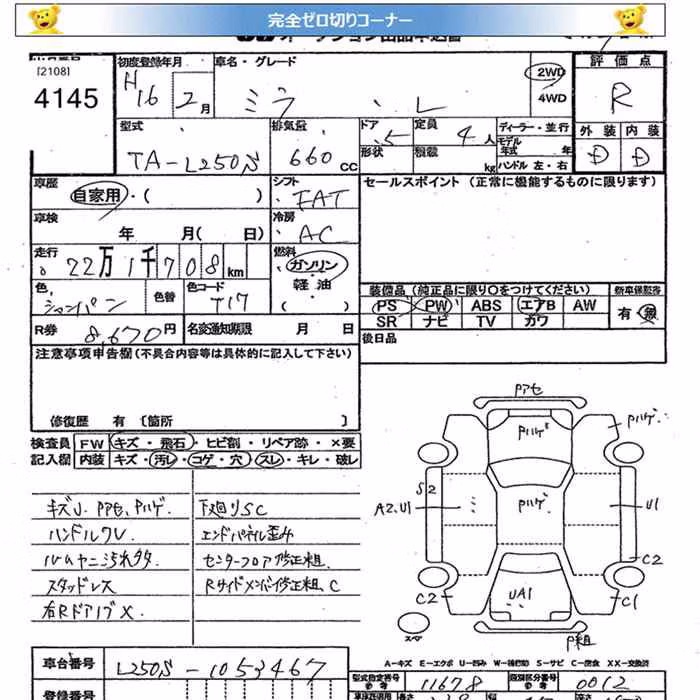 完全ゼロ切りコーナー
[2108]
4145
初度登録年月
H16 2月
車名・グレード
ミラ ・ L
2WD
4WD
評価点
R
外装 内装
D D
型式
TA-L250S
排気量
660 CC
ドア
5
形状
定員
4人
積載
kg
ディーラー・並行
モデル年式 年
ハンドル 左・右
車歴
自家用・( )
シフト
FAT
セールスポイント (正常に機能するものに限ります)
車検
年 月( 日)
冷房
AC
走行
22万1千708km
燃料
ガソリン
軽油
( )
色
シャンパン
色替
色コード
T17
装備品 (純正品に限り○をつけてください)
PS PW ABS エアB AW
SR ナビ TV カワ
新車保証書
有・無
R券
8,670円
名変通知期限 月 日
後日品
注意事項申告欄(不具合内容等は具体的に記入して下さい)
修復歴 有 〔箇所 〕
検査員記入欄
FW キズ・飛石・ヒビ割・リペア跡・×要
内装 キズ・汚レ・コゲ・穴・スレ・キレ・破レ
キズU. Pアセ、Pハゲ
ハンドルクV
ルームヤニ汚れ多
スタッドレス
右Rドア1ブX
下廻りSC
エンドパネル歪み
センターフロア修正粗.
Rサイドメンバー修正粗、C
Pアセ
Pハゲ
Pハゲ.
S2
A2.U1
Pハゲ.
U1
C2
C2
UA1
C1
スペア
P粗
A-キズ E-エクボ U-凹み W-補修跡 S-サビ C-腐食 XX-交換済
車台番号
L250S-1053467
型式指定番号
参考
11678
類別区分番号
参考
0012
登録番号